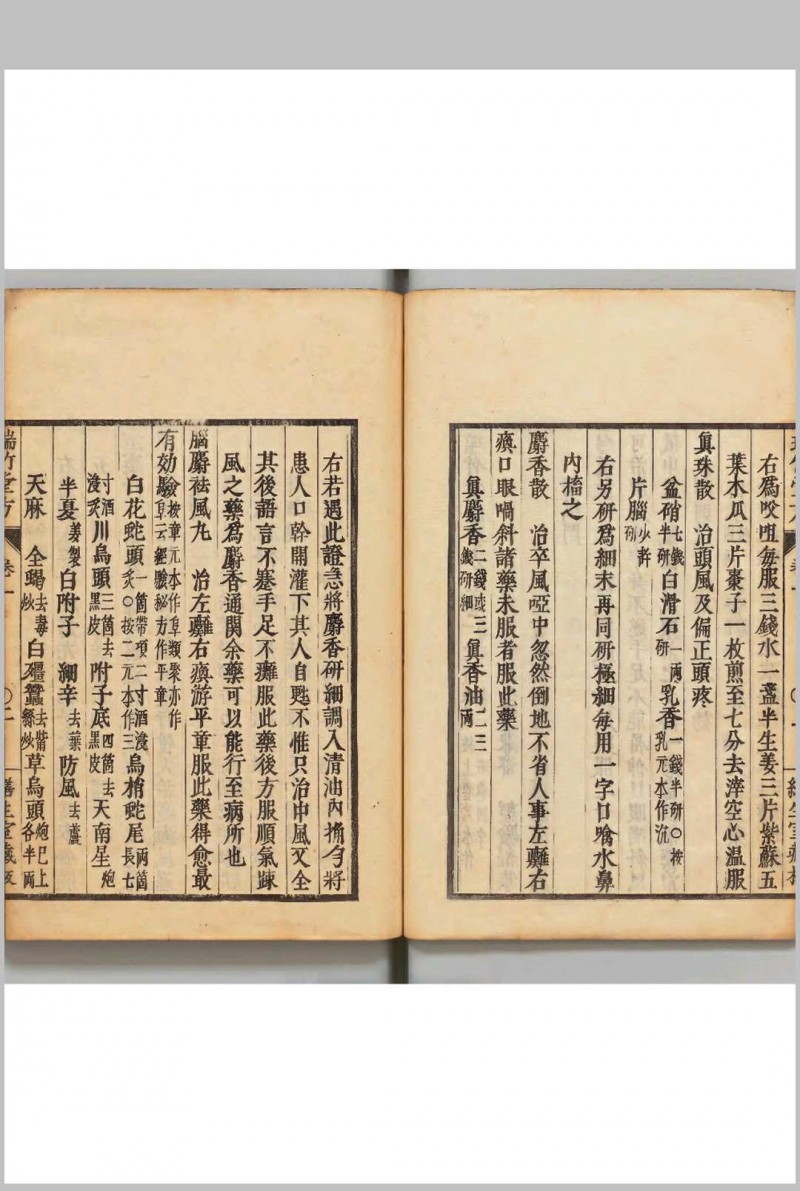 右爲㕮咀每服三錢水一盞半生姜三片紫蘇五
葉木瓜三片棗子一枚煎至七分去滓空心温服
眞珠散　治頭風及偏正頭疼
盆硝七錢半研白滑石一兩研乳香一錢半研○按乳元本作沉
片腦少許研
右另研爲細末再同研極細每用一字口噙水鼻
內搐之
麝香散　治卒風啞中忽然倒地不省人事左癱右
瘓口眼喎斜諸藥未服者服此藥
眞麝香二錢或三錢研細眞香油二三兩
右若遇此證急將麝香研細調入清油內攪勻將
患人口斡開灌下其人自甦不惟只治中風又全
其後語言不蹇手足不癱服此藥後方服順氣疎
風之藥爲麝香通関余藥可以能行至病所也
腦麝祛風丸　治左癱右瘓游平章服此藥得愈最
有効驗按章元本作阜類聚亦作阜云經驗秘方作平章
白花虵頭一箇帶項二寸酒浸炙○按二元本作三烏梢虵尾兩箇長七
寸酒浸炙川烏頭三箇去黑皮附子底四箇去黑皮天南星炮
半夏姜製白附子　細辛去葉防風去蘆
天麻　全蝎去毒炒白殭蠶去觜絲炒草烏頭炮巳上各半兩
瑞竹堂方　卷一　○二